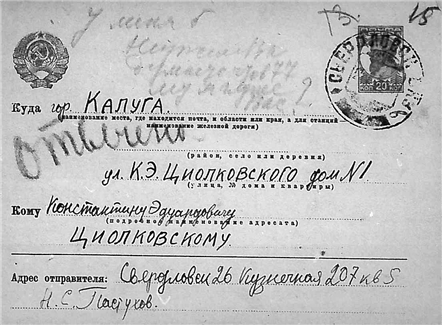 У меня
15
СВЕРДЛОВСК
20
КОП
Куда гор. КАЛУГА.
(наименование места, где находится почта, и области или края, а для станций
наименование железной дороги)
Отвечено
(район, село или деревня)
ул. К.Э. ЦИОЛКОВСКОГО дом №1
(улица, № дома и квартиры)
Кому Константину Эдуардовичу
(подробное наименование адресата)
ЦИОЛКОВСКОМУ.
Адрес отправителя: Свердловск 26 Кузнечная 207 кв 5
Н. С. Пастухов.